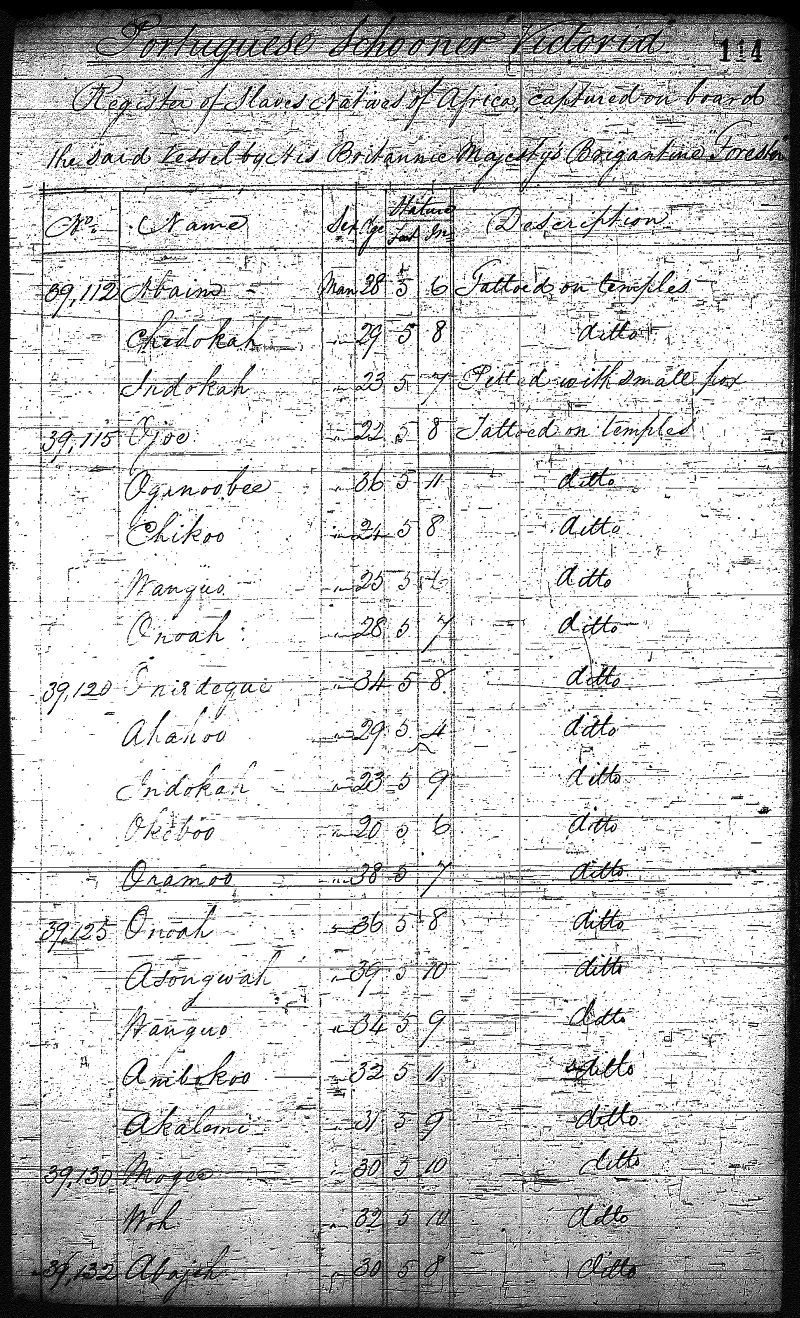 Portuguese Schooner "Victoria" 114
Register of Slaves Natives of Africa, captured on board
the said Vessel by His Britannic Majesty's Brigantine "Forester"
No. Name Sex Age Stature Feet In Description
39,112 Abaim Man 28 5 6 Tattoed on temples
Chidokah " 29 5 8 ditto
Indokah " 23 5 7 Pitted with small pox
39,115 Ojoe " 22 5 8 Tattoed on temples
Oginoobee " 36 5 11 ditto
Chikoo " 24 5 8 ditto
Wanquo " 25 5 6 ditto
Onoah " 28 5 7 ditto
39,120 " 34 5 8 ditto
Ahahoo " 29 5 4 ditto
Indokah " 23 5 9 ditto
Okeboo " 20 5 6 ditto
Oramoo " 38 5 7 ditto
39,125 Onoah " 36 5 8 ditto
Asongwah " 39 5 10 ditto
Wanquo " 34 5 9 ditto
Anibokoo " 32 5 11 ditto
Akalemi " 31 5 9 ditto
39,130 Mogee " 30 5 10 ditto
Woh " 32 5 10 ditto
39,132 Abajeh " 30 5 8 ditto